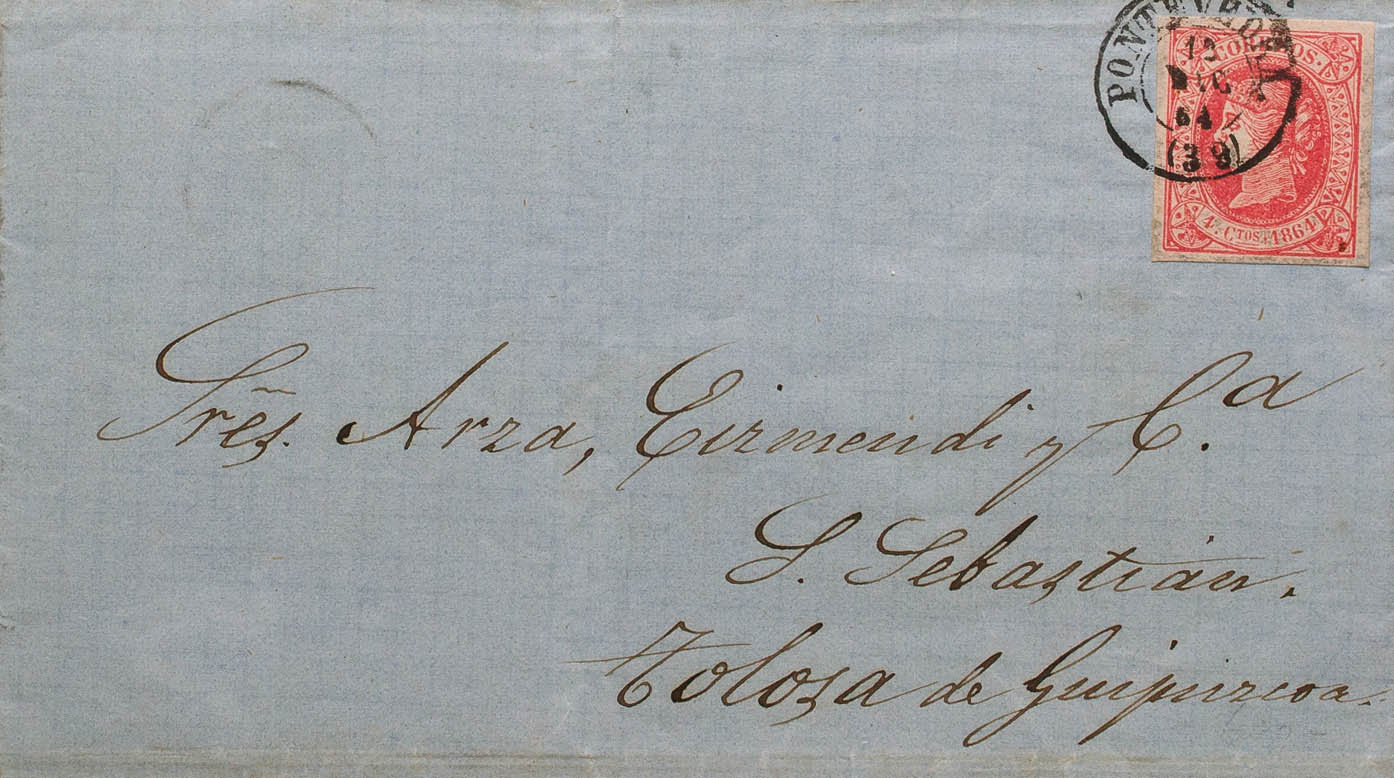 PONTEVEDRA
12
DIC
64
(39)
CORREOS.
4 CTOS 1864
Sres. Arza, Eizmendi y C.a
S. Sebastián.
Tolosa de Guipuzcoa.